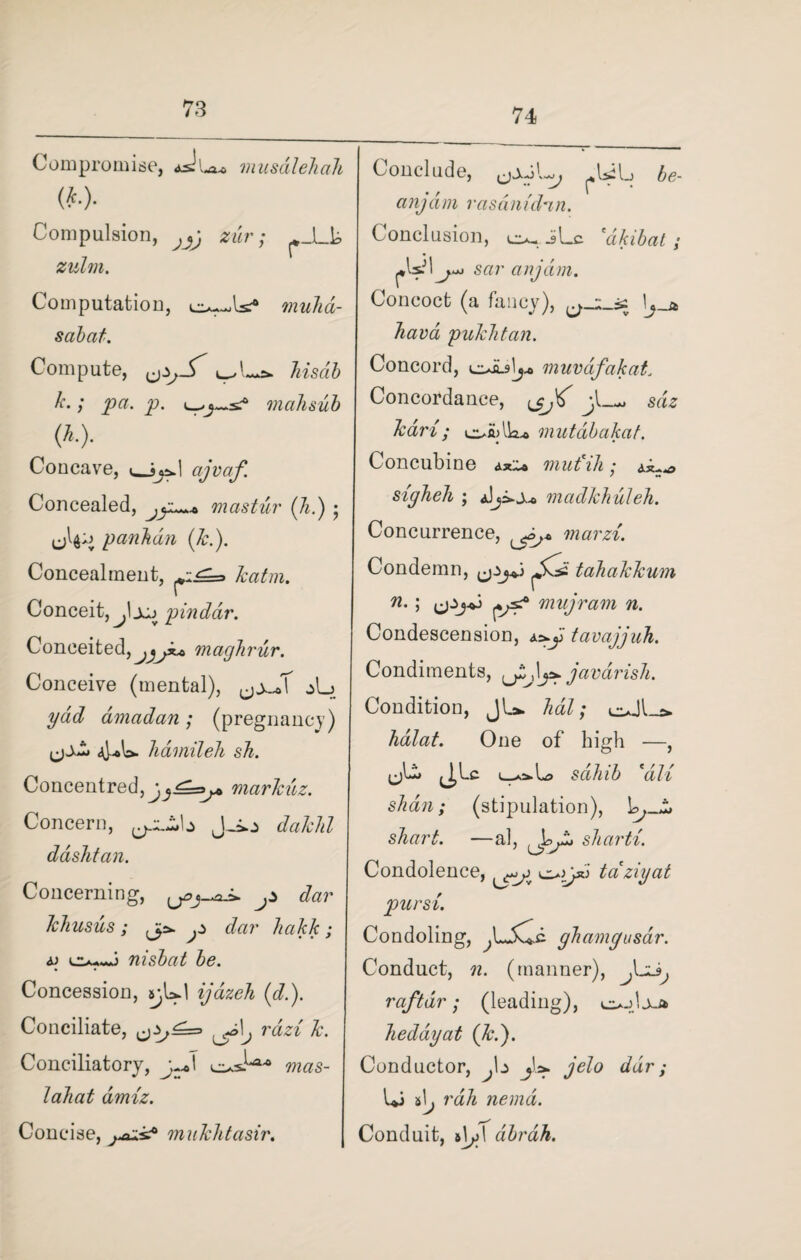 73
Compromise, مصالحه musálehah
(k.).
Compulsion, زور zúr; ظلم
zulm.
Computation, محاسبت muhá-
sabat.
Compute, حساب کردن hisáb
k.; pa. p. محسوب mahsúb
(h.).
Concave, اجوف ajvaf.
Concealed, مستور mastúr (h.);
پنهان panhán (k.).
Concealment, کتم katm.
Conceit, پندار pindár.
Conceited, مغرور maghrúr.
Conceive (mental), یاد آمدن
yád ámadan; (pregnancy)
حامله شدن hámileh sh.
Concentred, مرکوز markúz.
Concern, دخل داشتن dakhl
dáshtan.
Concerning, در خصوص dar
khusús; در حق dar hakk;
نسبت به nisbat be.
Concession, اجازه ijázeh (d.).
Conciliate, راضی کردن rází k.
Conciliatory, مصلحت آمیز mas-
lahat ámíz.
Concise, مختصر mukhtasir.
74
Conclude, بانجام رسانیدن be-
anjám rasánídan.
Conclusion, عاقبت 'ákibat;
سر انجام sar anjám.
Concoct (a fancy), هوا پختن
havá pukhtan.
Concord, موافقت muváfakat.
Concordance, ساز کاری sáz
kárí; مطابقت mutábakat.
Concubine متعه mut'ih; صیغه
sígheh; مدخوله madkhúleh.
Concurrence, مرضی marzí.
Condemn, تحکم نمودن tahakkum
n.; مجرم نمودن mujram n.
Condescension, توجه tavajjuh.
Condiments, جوارش javárish.
Condition, حال hál; حالت
hálat. One of high —,
صاحب عالی شان sáhib 'álí
shán; (stipulation), شرط
shart. —al, شرطی shartí.
Condolence, تعزیت پرسی ta'ziyat
pursí.
Condoling, غمگسار ghamgusár.
Conduct, n. (manner), رفتار
raftár; (leading), هدایت
hedáyat (k.).
Conductor, جلو دار jelo dár;
راه نما ráh nemá.
Conduit, آبراه ábráh.